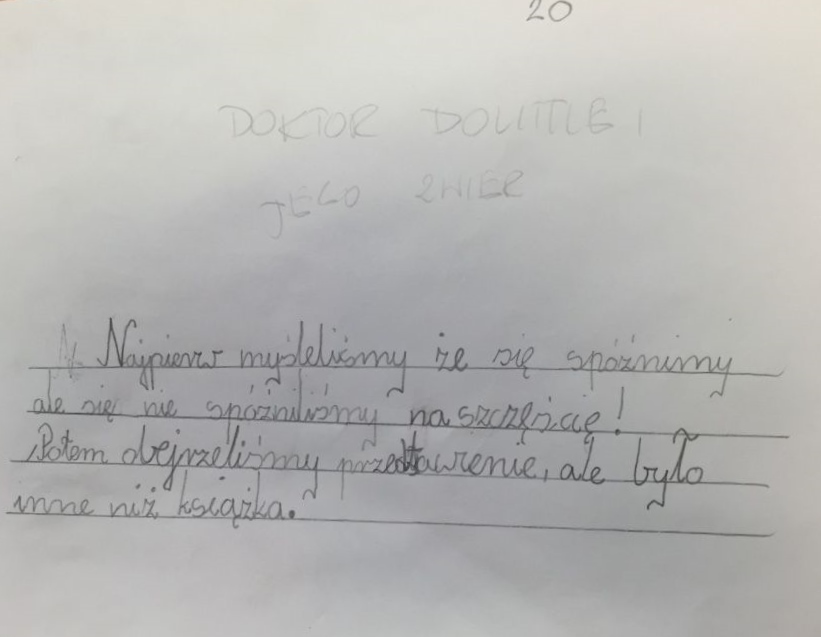 20
DOKTOR DOLITTLE I
JEGO ZWIER
Najpierw myśleliśmy że się spóźnimy
ale się nie spóźniliśmy na szczęście!
Potem obejrzeliśmy przedtawienie, ale było
inne niż książka.